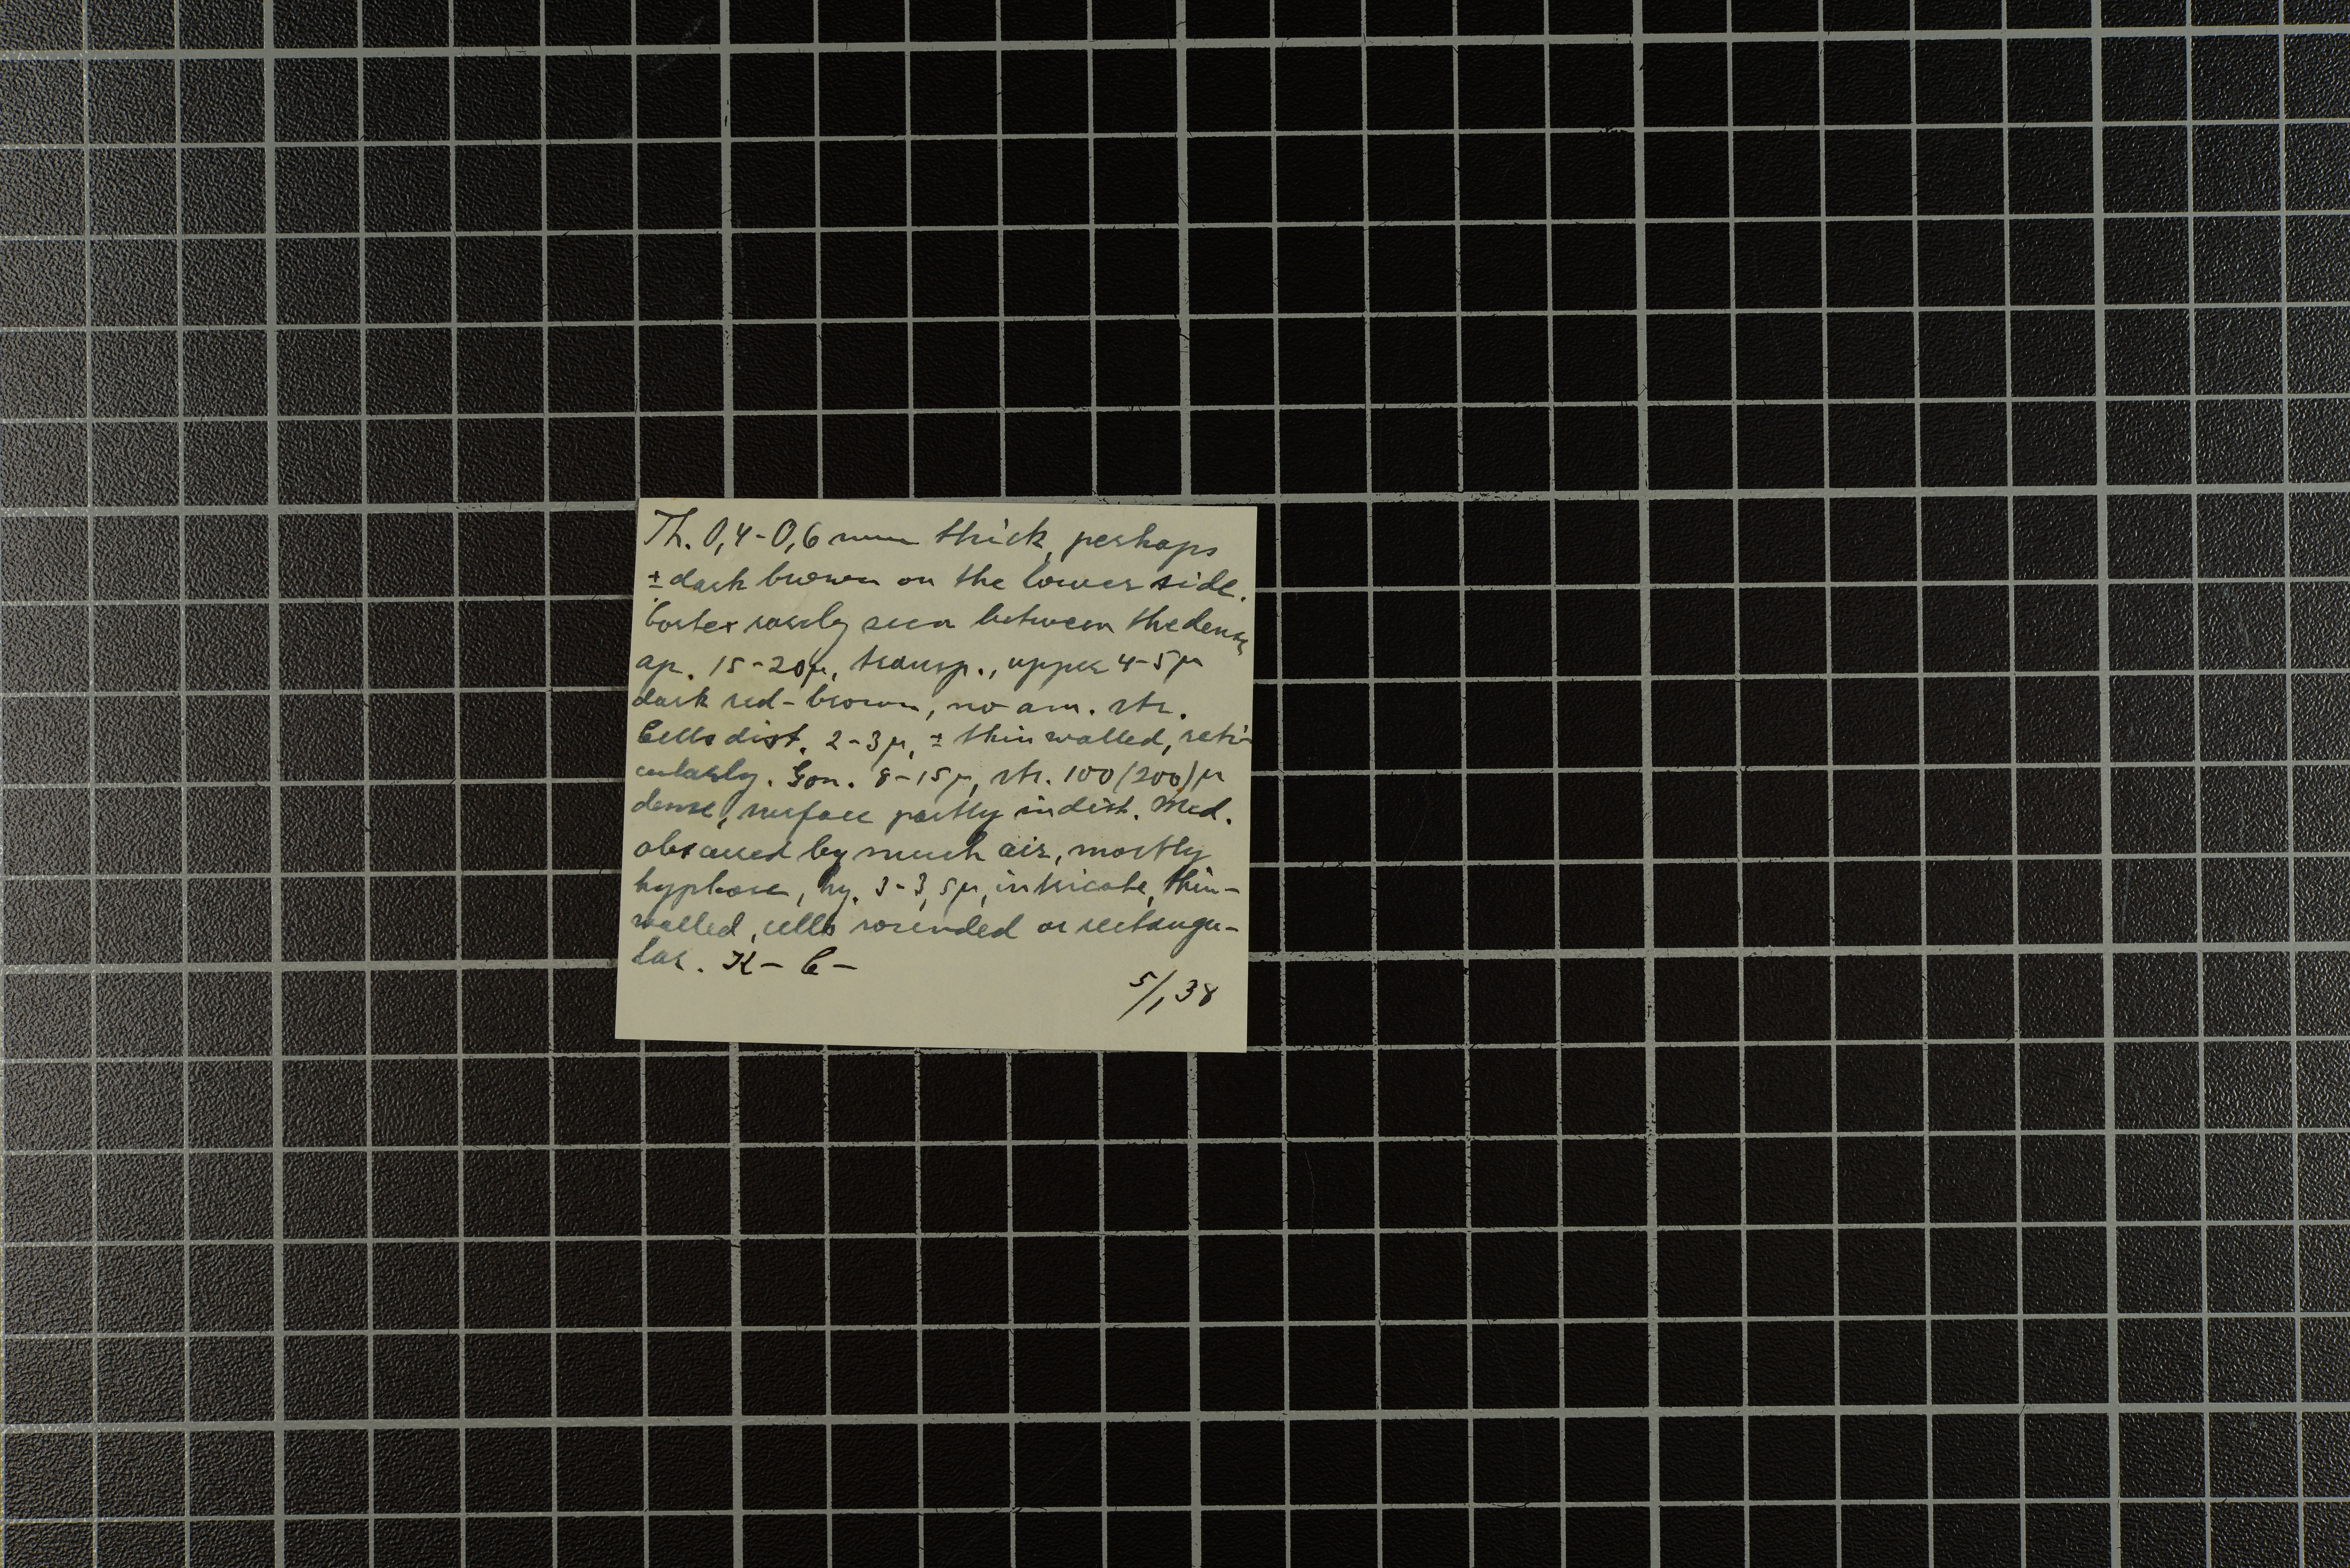 Th. 0,4-0,6 mm thick, perhaps
± dark brown on the lower side.
Cortex rarely seen between the dense
ap. 15-20µ, transp., upper 4-5µ
dark red-brown, no am. str.
Cells dist. 2-3µ, ± thin walled, reti-
cularly. Gon. 8-15µ, str. 100(200)µ
dense, surface partly indist. Med.
obscured by much air, mostly
hyphose, hy. 3-3,5µ, intricate, thin-
walled, cells rounded or rectangu-
lar. K- C-
5/1 38